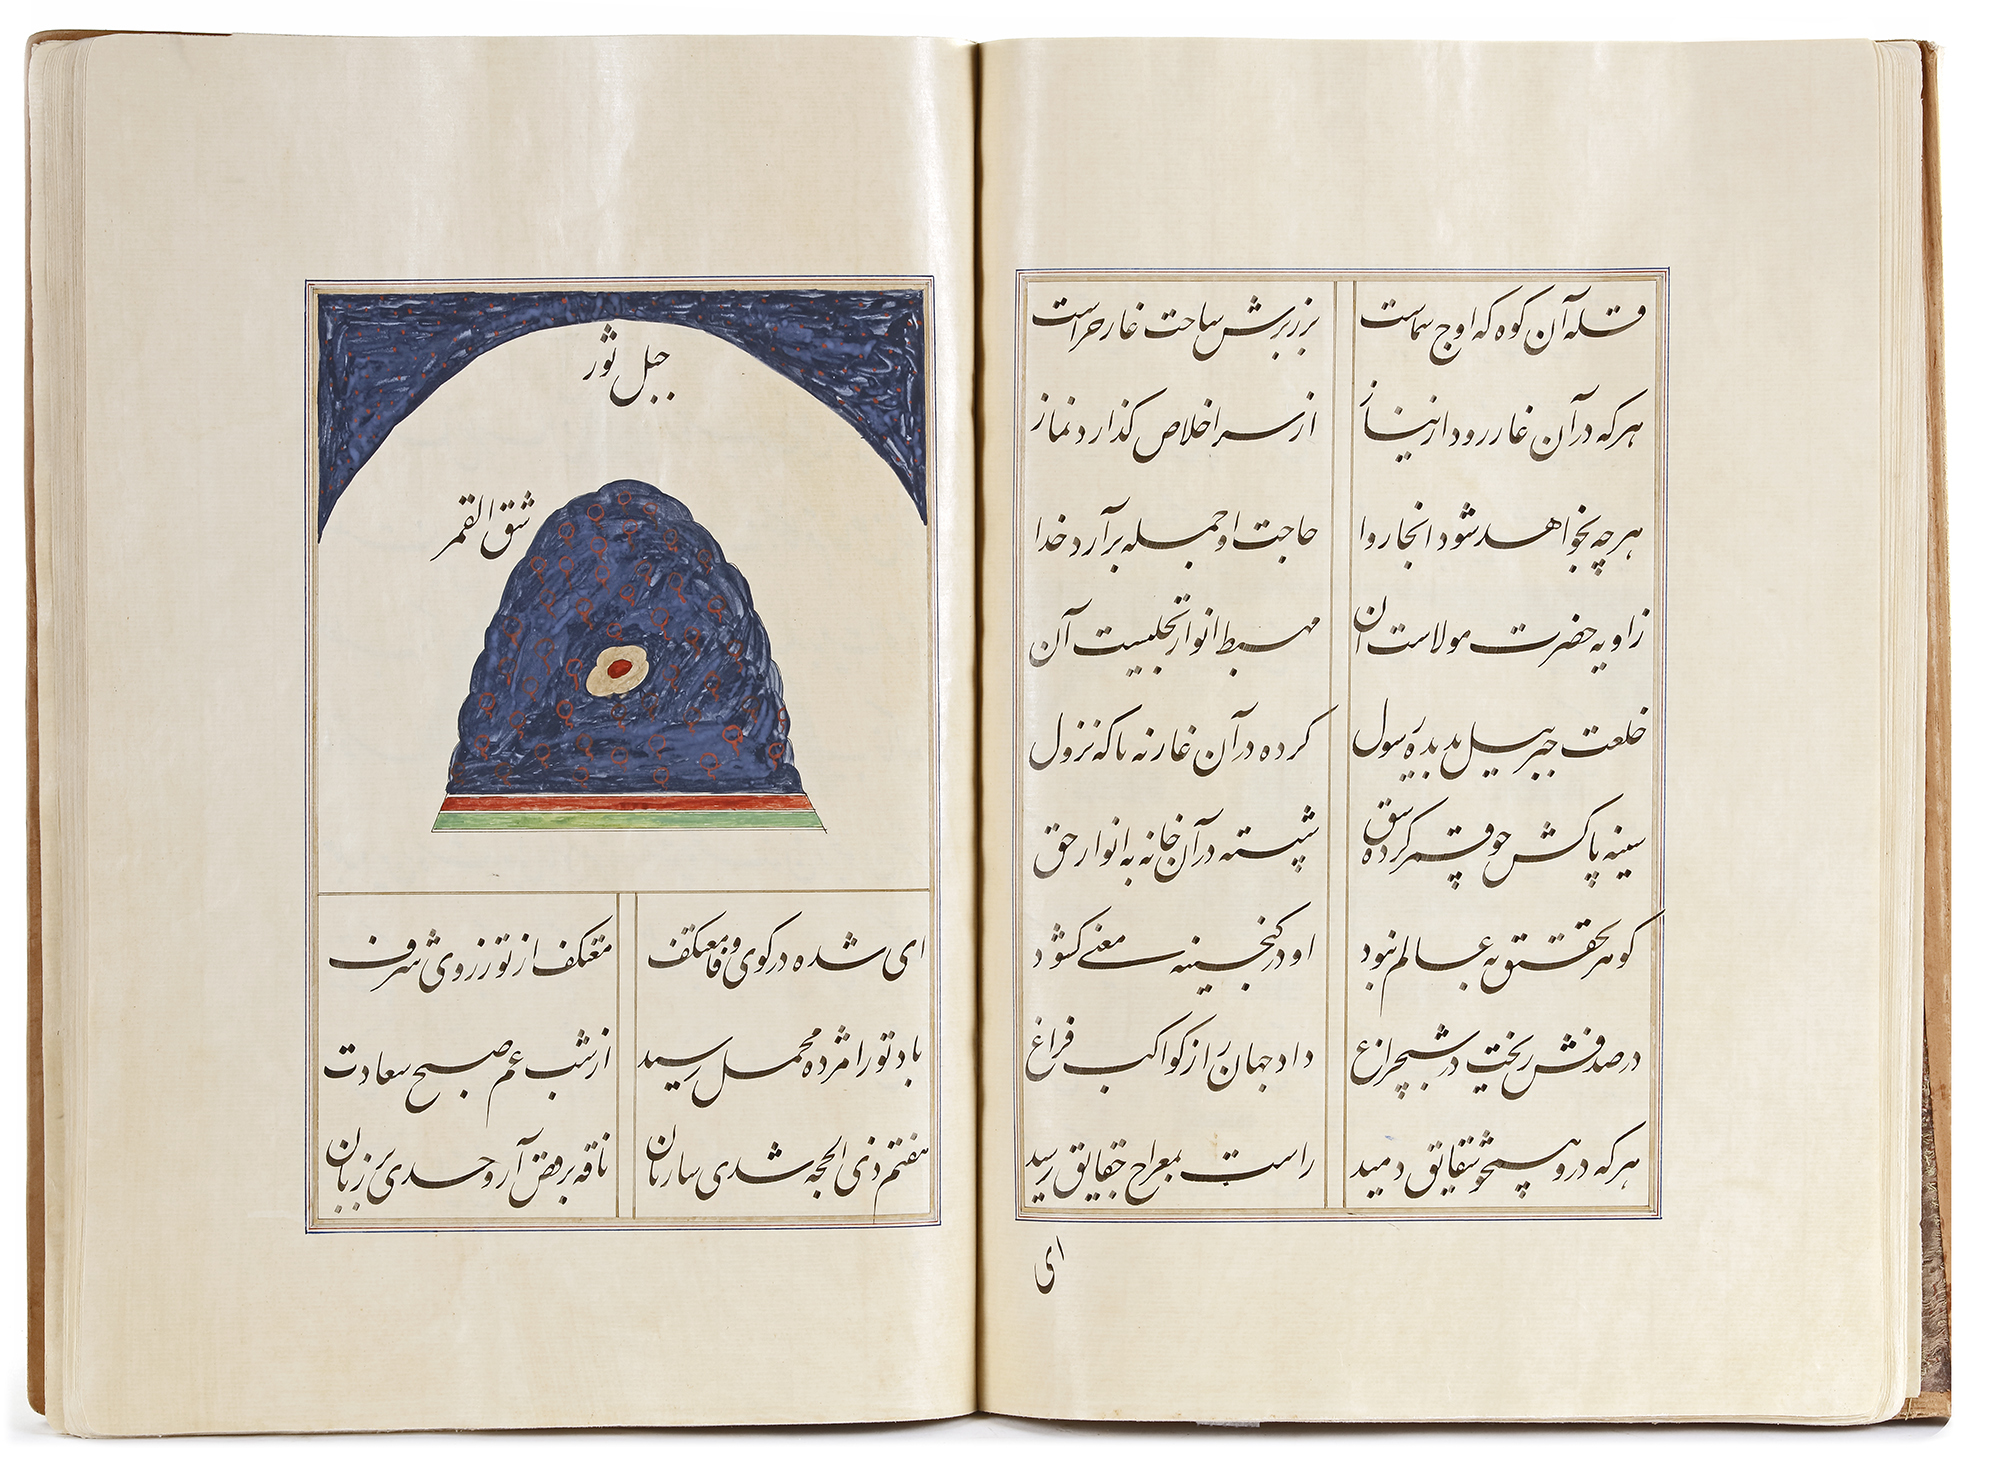 قله آن کوه که اوج سماست برزبرش ساحت غار حراست
هرکه در آن غار رود از نیاز از سر اخلاص گذارد نماز
هرچه بخواهد شود انجا روا حاجت او جمله برآرد خدا
زاویه حضرت مولاست ان مهبط انوار تجلیست آن
خلعت جبریل بدیده رسول کرده در آن غار نه باکه نزول
سینه پاکش چو قمر کرده شق شسته در آن خانه به انوار حق
کوهر تحقیق به عالم نبود او در کنجینه معنی کشود
در صدفش ریخت در شبچراغ داد جهان را ز کواکب فراغ
هرکه درو همچو شقایق دمید راست بمعراج حقایق رسید
ای
جبل ثور
شق القمر
ای شده در کوی وفا معتکف معتکف از تو ز روی شرف
باد تو را مژده محمل رسید از شب غم صبح سعادت
هفتم ذی الحجه شدی ساربان ناقه برقص آر و حدی بر زبان